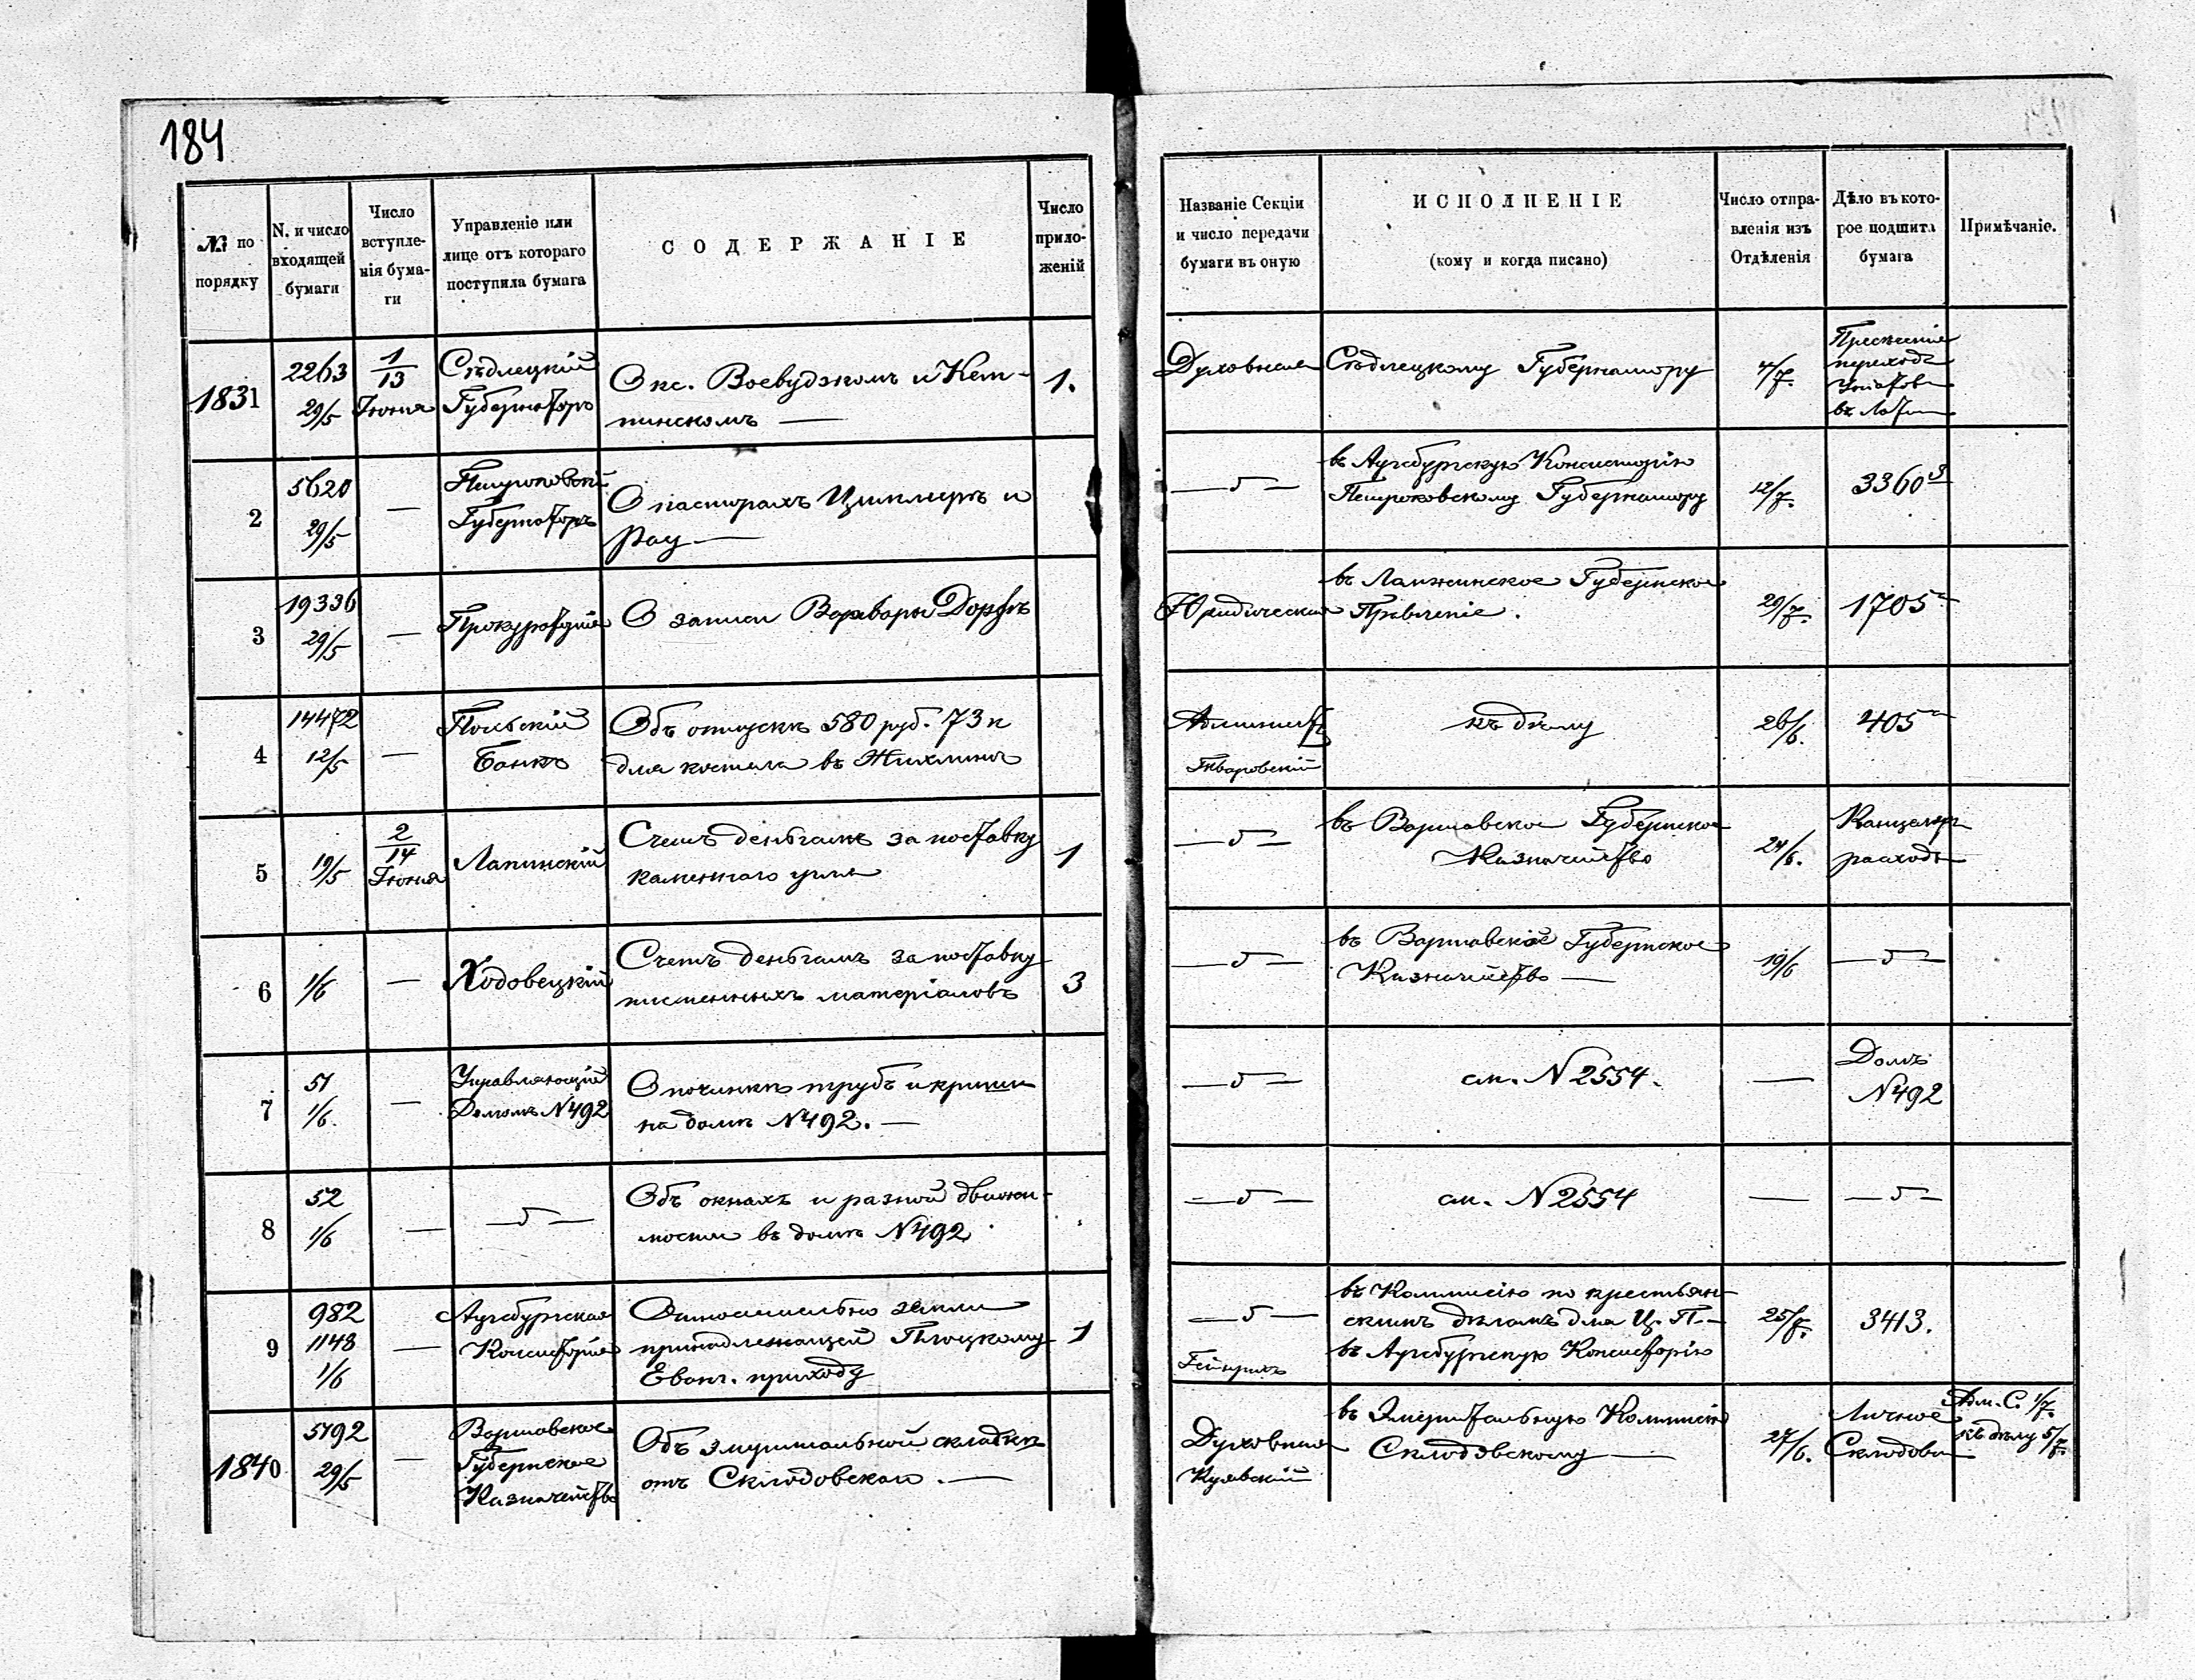 184
№ по порядку
N. и число входящей бумаги
Число вступле-нія бума-ги
Управленіе или лице отъ котораго поступила бумага
СОДЕРЖАНІЕ
Число прило-женій
Названіе Секціи и число передачи бумаги въ оную
ИСПОЛНЕНІЕ
(кому и когда писано)
Число отпра-вленія изъ Отдѣленія
Дѣло въ кото-рое подшита бумага
Примѣчаніе.
1831
2263
29/5
1/13
Іюня
Сѣдлецкій
Губернаторъ
О кс. Воевудзкомъ и Кем-
пинскомъ —
1.
Духовная
Сѣдлецкому Губернатору
4/7.
переходъ
въ
2
5620
29/5
—
Петроковскій
Губернаторъ
О пасторахъ Циммеръ и
Рау —
— „ —
въ Аугсбургскую Консисторію
Петроковскому Губернатору
12/7.
3360
3
19336
29/5
—
Прокураторія
О записи Варвары Дорфъ
Юридическая
въ Ломжинское Губернское
Правленіе.
20/7.
1705
4
14472
12/5
—
Польскій
Банкъ
Объ отпускѣ 580 руб. 73 к
для костела въ Жихлинѣ
къ дѣлу
26/6.
405
5
19/5
2/14
Іюня
Лапинскій
Счетъ деньгамъ за поставку
каменнаго угля
1
— „ —
въ Варшавское Губернское
Казначейство
24/6.
Канцеляр
расходы
6
1/6
—
Ходовецкій
Счетъ деньгамъ за поставку
письменныхъ матеріаловъ
3
— „ —
въ Варшавское Губернское
Казначейство —
19/6
— „ —
7
51
1/6.
—
Управляющій
Домомъ N 492
О починкѣ трубъ и крыши
на домѣ N 492. —
— „ —
см. N 2554.
—
Домъ
N 492
8
52
1/6
—
— „ —
Объ окнахъ и разной движи-
мости въ домѣ N 492
— „ —
см. N 2554
—
— „ —
9
982
1148
1/6
—
Аугсбургская
Консисторія
Относительно земли
принадлежащей Плоцкому
Еванг. приходу
1
— „ —
Гейнрихъ
въ Коммисію по крестьян-
скимъ дѣламъ для Ц. П.
въ Аугсбургскую Консисторію
25/7.
3413.
1840
5792
29/5
—
Варшавское
Губернское
Казначейство
Объ эмеритальной складкѣ
отъ Склодовскаго. —
Духовная
Куявскій
въ Эмеритальную Коммисію
Склодовскому —
27/6.
Личное
Склодовск
Адм. С. 1/7.
къ дѣлу 5/7.